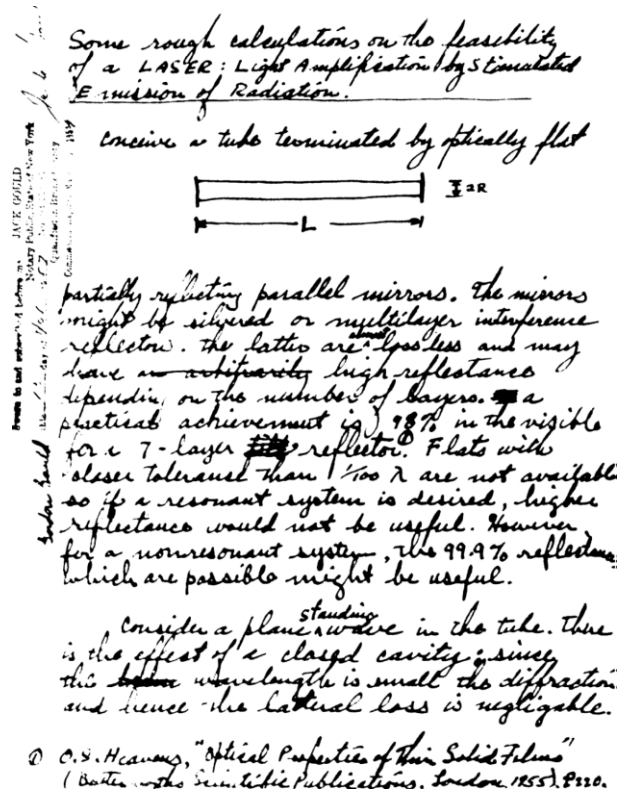 Some rough calculations on the feasibility
of a LASER: Light Amplification by Stimulated
Emission of Radiation.
conceive a tube terminated by optically flat
2R
L
partially reflecting parallel mirrors. The mirrors
might be silvered or multilayer interference
reflectors. The latter are almost lossless and may
have an arbitrarily high reflectance
depending on the number of layers. a
practical achievement is 98% in the visible
for a 7-layer reflector.① Flats with
closer tolerance than 1/100 λ are not available
so if a resonant system is desired, higher
reflectance would not be useful. However
for a nonresonant system, the 99.9% reflectances
which are possible might be useful.
Consider a plane standing wave in the tube. There
is the effect of a closed cavity; since
the wavelength is small the diffraction
and hence the lateral loss is negligable.
① O.S. Heavens, "Optical Properties of Thin Solid Films"
(Butterworths Scientific Publications, London 1955), P220.
Gordon Gould
Sworn to and subscribed before me
JACK GOULD
Notary Public, State of New York